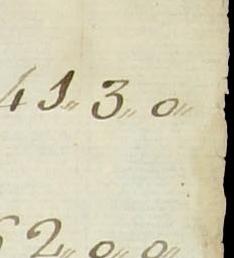 41„ 3„ 0„
62„ 0„ 0„